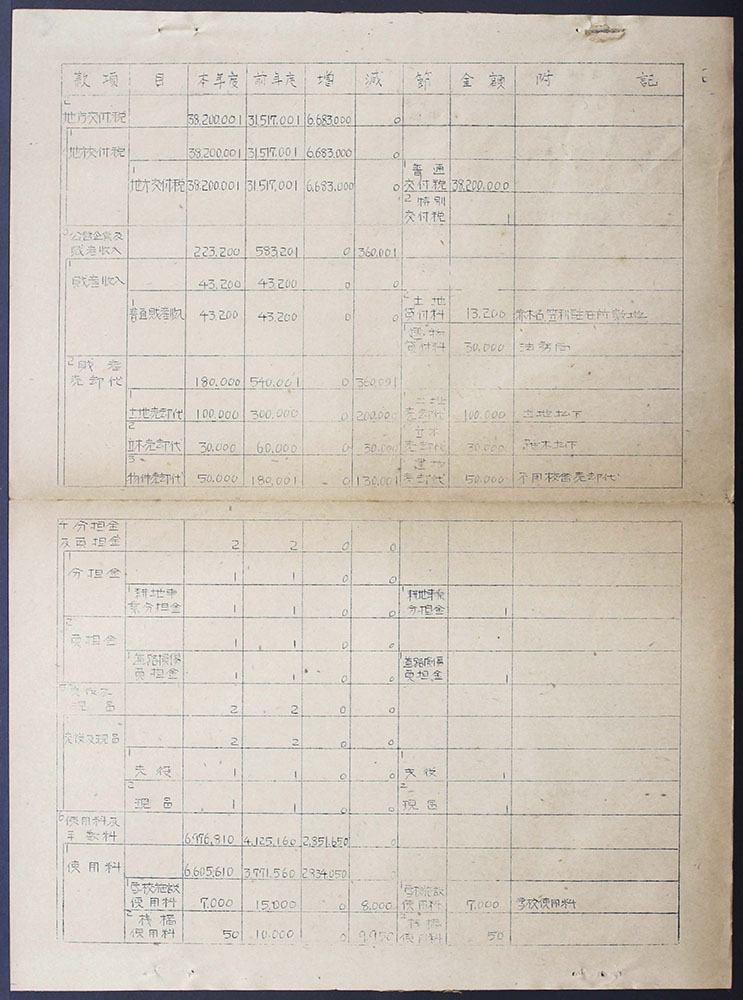 款項 目 本年度 前年度 増 減 節 金額 附記
2 地方交付税 38,200,001 31,517,001 6,683,000 0
1 地方交付税 38,200,001 31,517,001 6,683,000 0
1 地方交付税 38,200,001 31,517,001 6,683,000 0 1 普通交付税 38,200,000
2 特別交付税 1
3 公営企業及財産収入 223,200 583,201 0 360,001
1 財産収入 43,200 43,200 0 0
1 普通財産収入 43,200 43,200 0 0 土地貸付料 13,200
建物貸付料 30,000 法務局
2 財産売却代 180,000 540,001 0 360,001
1 土地売却代 100,000 300,000 0 200,000 1 土地売却代 100,000 土地払下
2 立木売却代 30,000 60,000 0 30,000 1 立木売却代 30,000 払下
3 物件売却代 50,000 180,001 0 130,001 1 建物売却代 50,000 不用校舎売却代
4 分担金及負担金 2 2 0 0
1 分担金 1 1 0 0
1 耕地事業分担金 1 1 0 0 1 耕地事業分担金 1
2 負担金 1 1 0 0
1 道路損傷負担金 1 1 0 0 1 道路損傷負担金 1
夫役及現品 2 2 0 0
夫役及現品 2 2 0 0
1 夫役 1 1 0 0 1 夫役 1
2 現品 1 1 0 0 2 現品 1
6 使用料及手数料 6,976,810 4,125,160 2,851,650 0
1 使用料 6,605,610 3,771,560 2,834,050
1 学校施設使用料 7,000 15,000 0 8,000 1 学校施設使用料 7,000 学校使用料
2 桟橋使用料 50 10,000 0 9,950 2 桟橋使用料 50